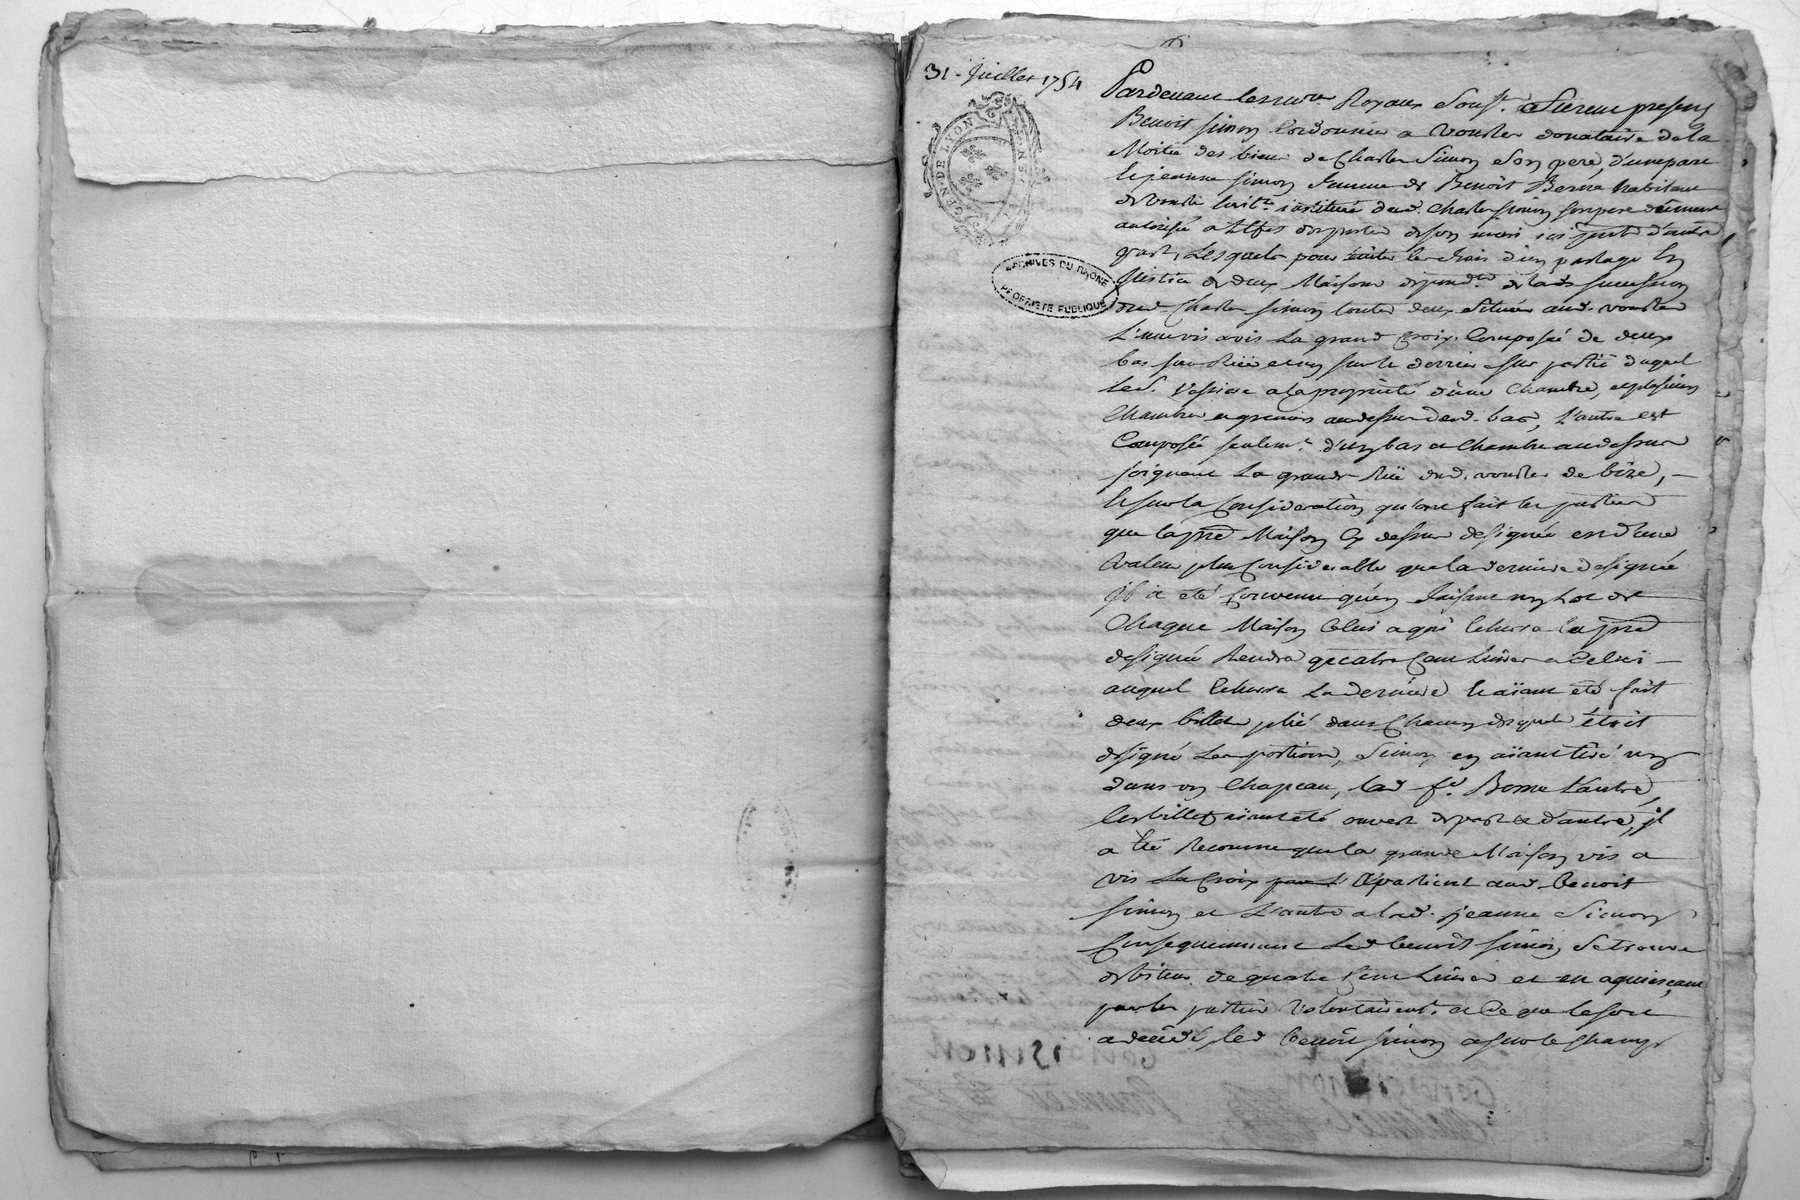 31 Juillet 1754
GEN DE LYON
ARCHIVES DU RHONE
PROPRIETE PUBLIQUE
Pardevant les nore. Royaux Souss. furent presens
Benoit simon Cordonnier a Vourles donataire de la
Moitié des biens de Charles Simon Son pere, d'une part
Et jeanne simon femme de Benoit Berne habitant
de Vourles instituée dud. Charles simon son pere dument
autorisée de son mari ici d'autre
part, Lesquels pour eviter les frais d'un partage En
Justice de deux Maisons depend.tes de lad. succession
dud. Charles simon toutes deux situées aud. Vourles
L'une vis avis La grand Croix, Composée de deux
bas sur Rüe et un sur le derrier sur partie duquel
led. a la proprieté d'une Chambre, et plusieurs
Chambres et greniers au dessus desd. bas, L'autre est
Composée seulem.t d'un bas et Chambre au dessus
joignant La grande Rüe dud. vourles de bize,
Et sur la Consideration qu'ont fait les parties
que la pre Maison cy dessus designée est d'une
Valeur plus Considerable que la derniere designée
il a été Convenu qu'en faisant un Lot de
Chaque Maison Celui a qui Echerra la pre
designée Rendra quatre Cent Livres a Celui
auquel Echerra La derniere Et aïant été fait
deux billets plié dans Chacun desquels étoit
designé Les portions, Simon en aïant tiré un
dans un Chapeau, lad. fe. Berne L'autre,
les billets aïant été ouvert de part & d'autre, il
a été Reconnu que la grande Maison vis a
vis La Croix apartient aud. Benoit
simon et L'autre a lad. jeanne Simon
Consequemment Led. benoit simon Se trouve
debiteur de quatre Cent Livres et en aquiesçant
par les parties Volontairem.t a Ce que le sort
a decidé, led. benoit simon a sur le Champ